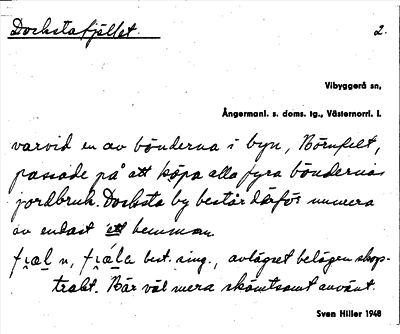 Dockstafjället. 2.
Vibyggerå sn,
Ångermanl. s. doms. tg., Västernorrl. l.
varvid en av bönderna i byn, Börnfelt,
passade på att köpa alla fyra böndernas
jordbruk. Docksta by består därför numera
av endast ett hemman.
fjæl n, fjǽla best. sing., avlägset belägen skogs-
trakt. Bär väl mera skämtsamt använt.
Sven Hiller 1948